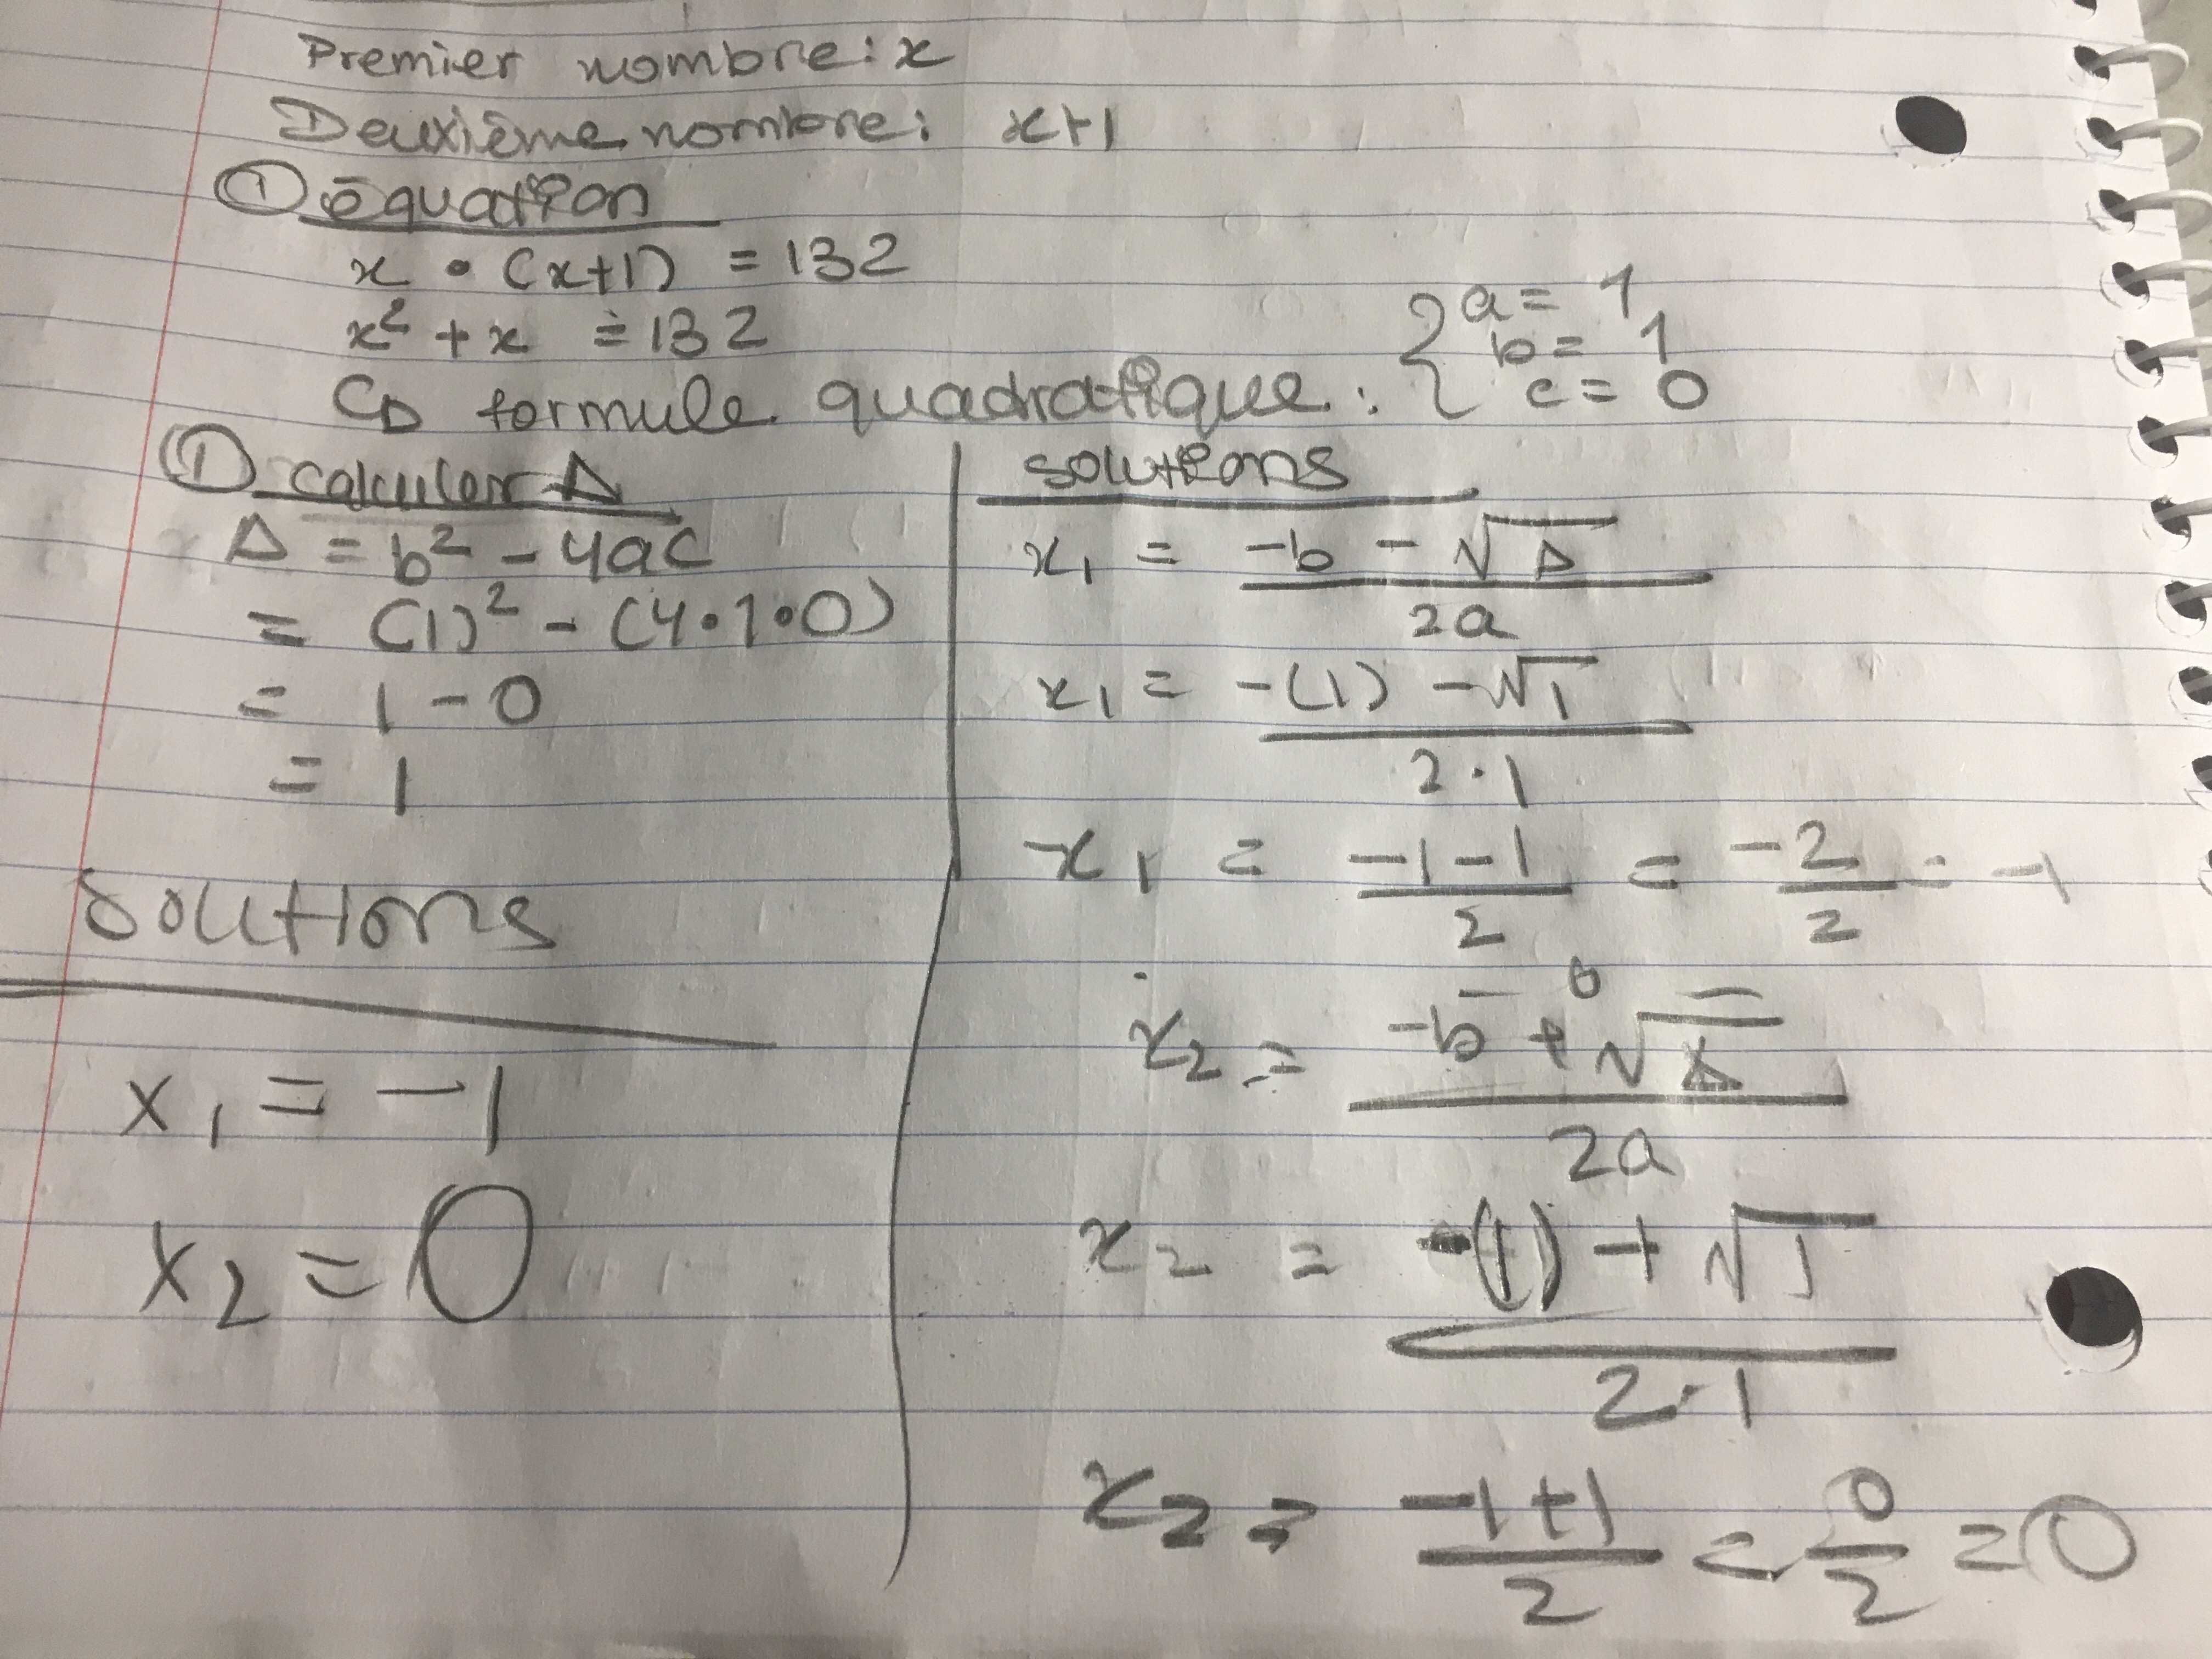 Premier nombre: x
Deuxième nombre: x+1
① équation
x • (x+1) = 132
x² + x = 132
CD formule quadratique : { a = 1
b = 1
c = 0
① calculer Δ
Δ = b² - 4ac
= (1)² - (4•1•0)
= 1 - 0
= 1
solutions
x₁ = -1
x₂ = 0
solutions
x₁ = (-b - √Δ) / 2a
x₁ = (-(1) - √1) / 2·1
x₁ = (-1-1) / 2 = -2/2 = -1
x₂ = (-b + √Δ) / 2a
x₂ = (-(1) + √1) / 2·1
x₂ = (-1+1) / 2 = 0/2 = 0